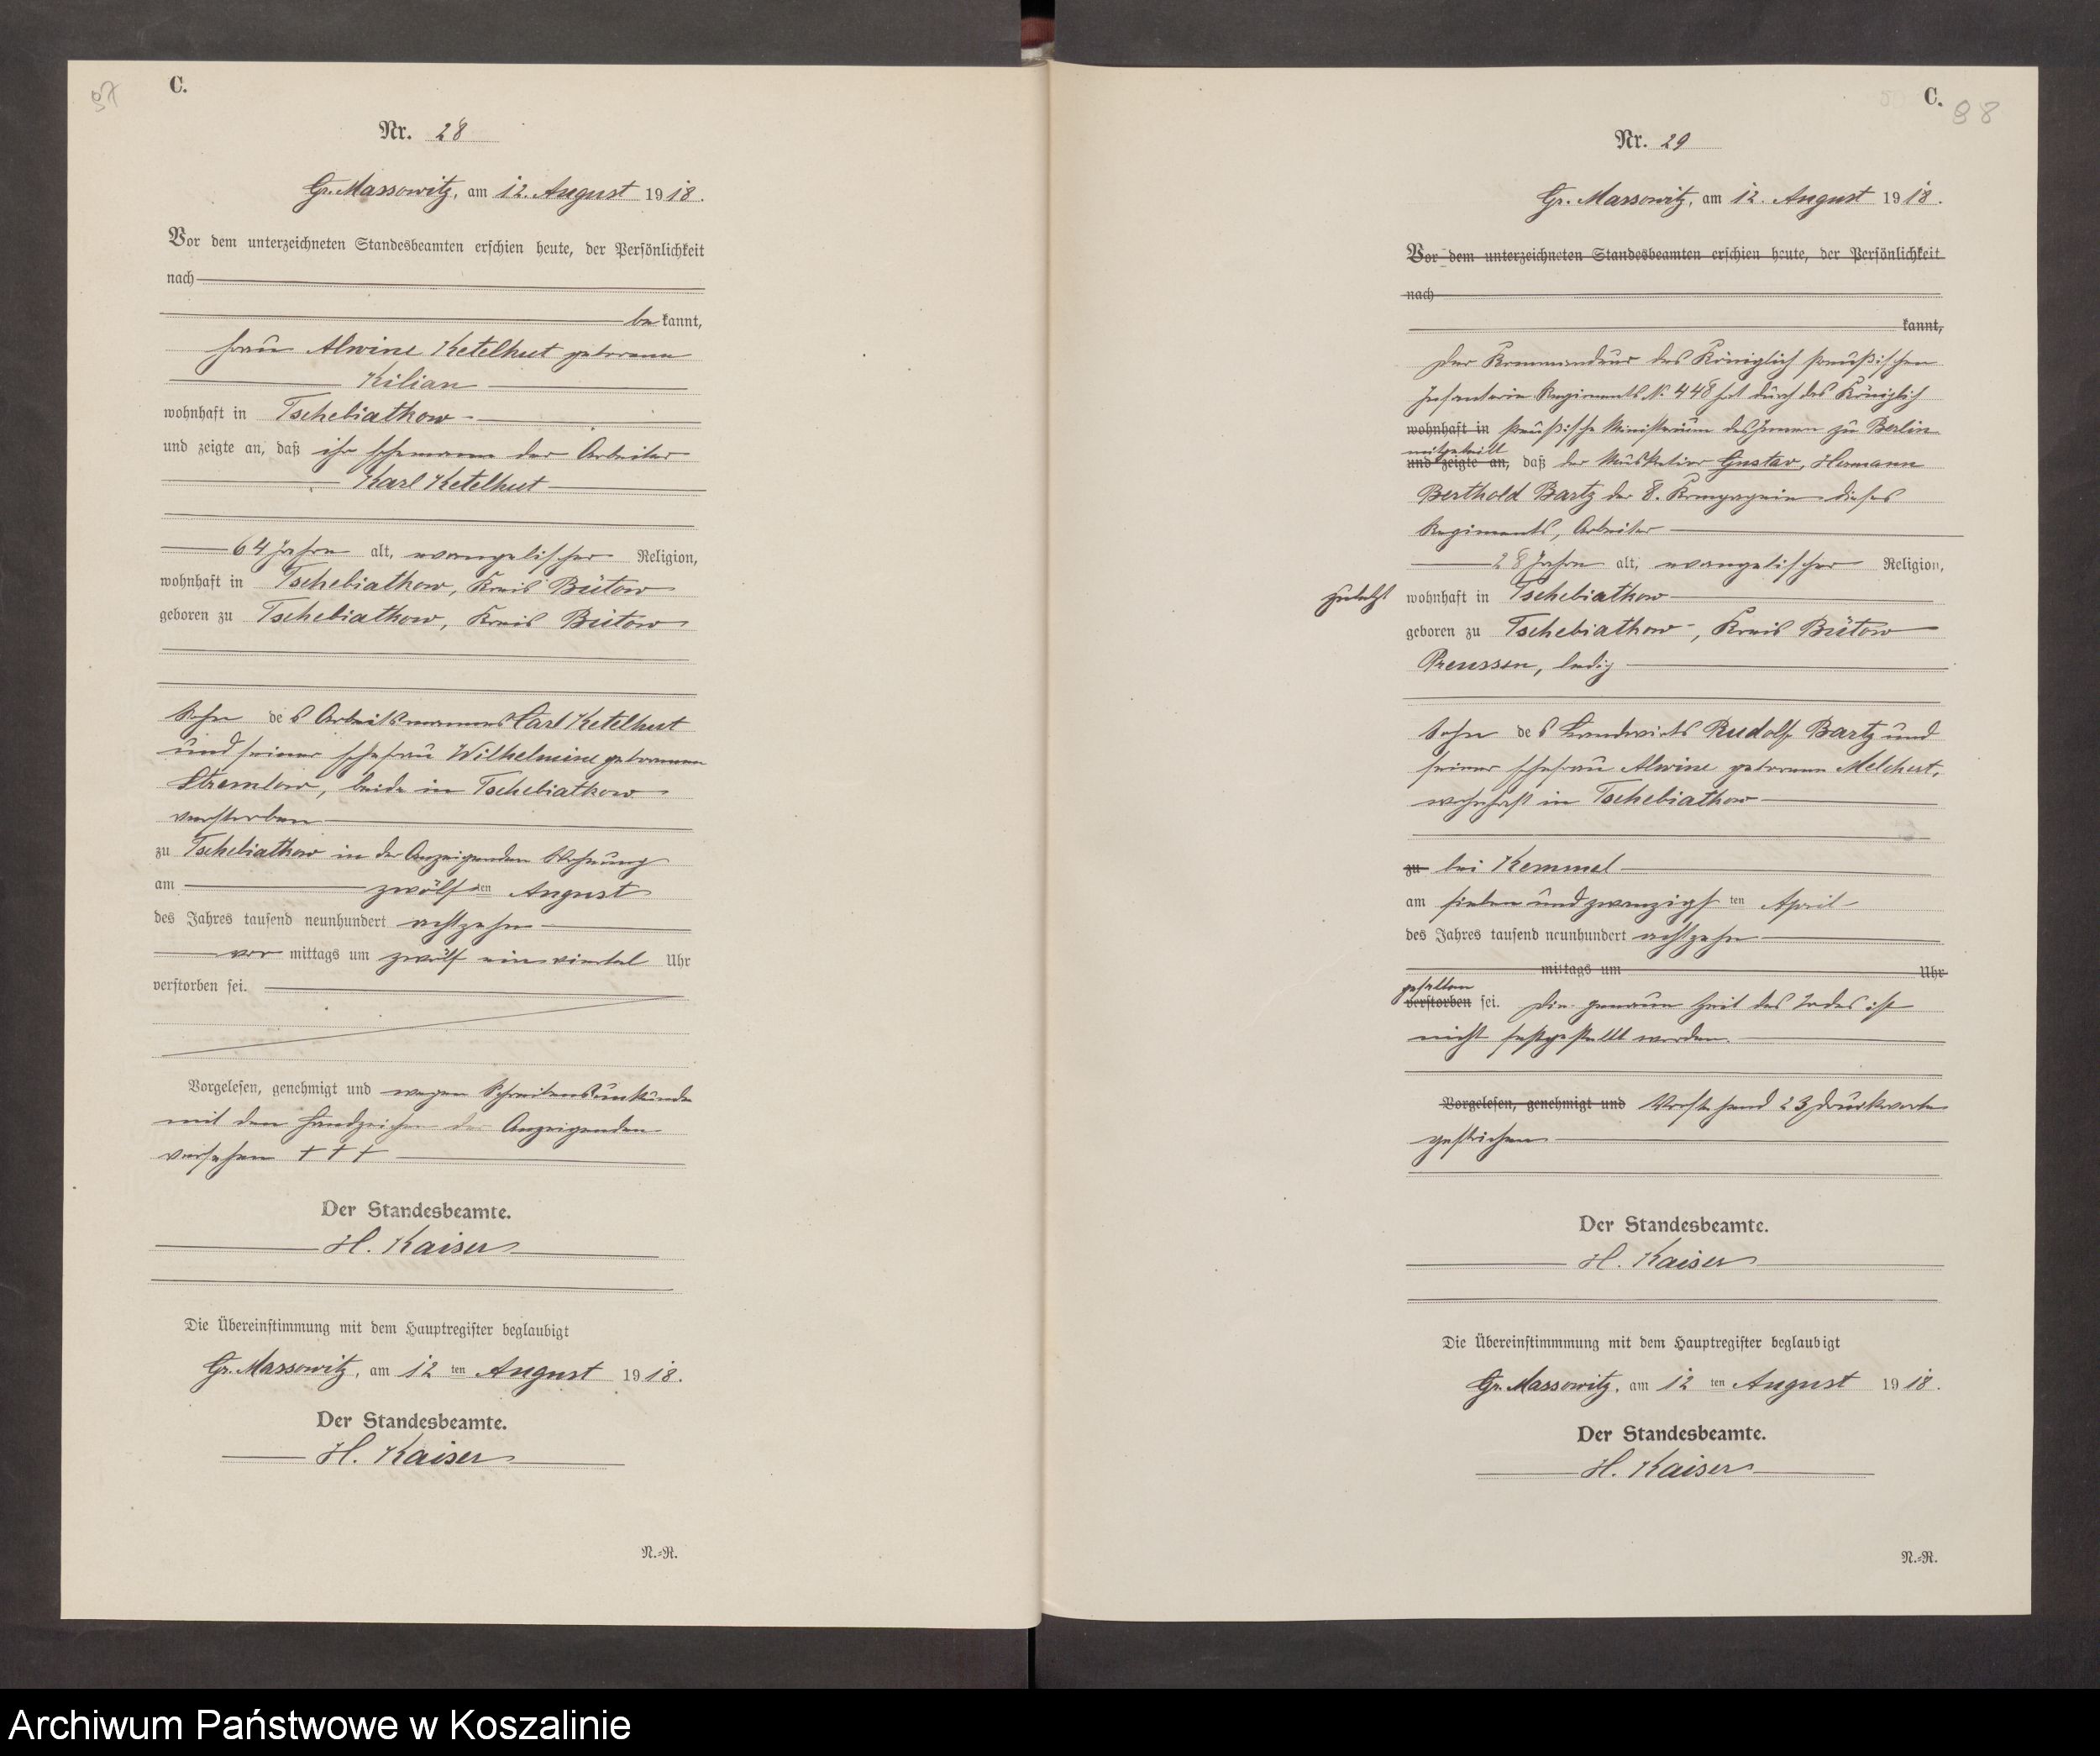 97
C.
Nr. 28
Gr. Massowitz, am 12. August 1918.
Vor dem unterzeichneten Standesbeamten erschien heute, der Persönlichkeit
nach
bekannt,
Frau Alwine Ketelhut geborene
Kilian
wohnhaft in Tschebiatkow
und zeigte an, daß ihr Ehemann der Arbeiter
Karl Ketelhut
64 Jahre alt, evangelischer Religion,
wohnhaft in Tschebiatkow, Kreis Bütow
geboren zu Tschebiatkow, Kreis Bütow
Sohn des Arbeitsmannes Carl Ketelhut
und seiner Ehefrau Wilhelmine geborenen
Stremlow, beide in Tschebiatkow
verstorben
zu Tschebiatkow in der Anzeigenden Wohnung
am zwölften August
des Jahres tausend neunhundert achtzehn
vormittags um zwölf einviertel Uhr
verstorben sei.
Vorgelesen, genehmigt und wegen Schreibensunkunde
mit den Handzeichen der Anzeigenden
versehen + + +
Der Standesbeamte.
H. Kaiser
Die Übereinstimmung mit dem Hauptregister beglaubigt
Gr. Massowitz, am 12ten August 1918.
Der Standesbeamte.
H. Kaiser
N.=R.
C.
98
Nr. 29
Gr. Massowitz, am 12. August 1918.
Vor dem unterzeichneten Standesbeamten erschien heute, der Persönlichkeit
nach
kannt,
Der Kommandeur des Königlich Preußischen
Infanterie Regiments N. 448 hat durch das Königlich
wohnhaft in Preußische Ministerium des Innern zu Berlin
mitgeteilt
und zeigte an, daß der Musketier Gustav, Hermann
Berthold Bartz der 8. Kompagnie dieses
Regiments, Arbeiter
28 Jahre alt, evangelischer Religion,
zuletzt wohnhaft in Tschebiatkow
geboren zu Tschebiatkow, Kreis Bütow
Preussen, ledig
Sohn des Landwirts Rudolf Bartz und
seiner Ehefrau Alwine geborene Melchert,
wohnhaft in Tschebiatkow
zu bei Kemmel
am sieben und zwanzigsten April
des Jahres tausend neunhundert achtzehn
mittags um Uhr
gefallen
verstorben sei. Die genaue Zeit des Todes ist
nicht festgestellt worden.
Vorgelesen, genehmigt und Vorstehend 23 Druckworte
gestrichen
Der Standesbeamte.
H. Kaiser
Die Übereinstimmmung mit dem Hauptregister beglaubigt
Gr. Massowitz, am 12ten August 1918.
Der Standesbeamte.
H. Kaiser
N.=R.
Archiwum Państwowe w Koszalinie